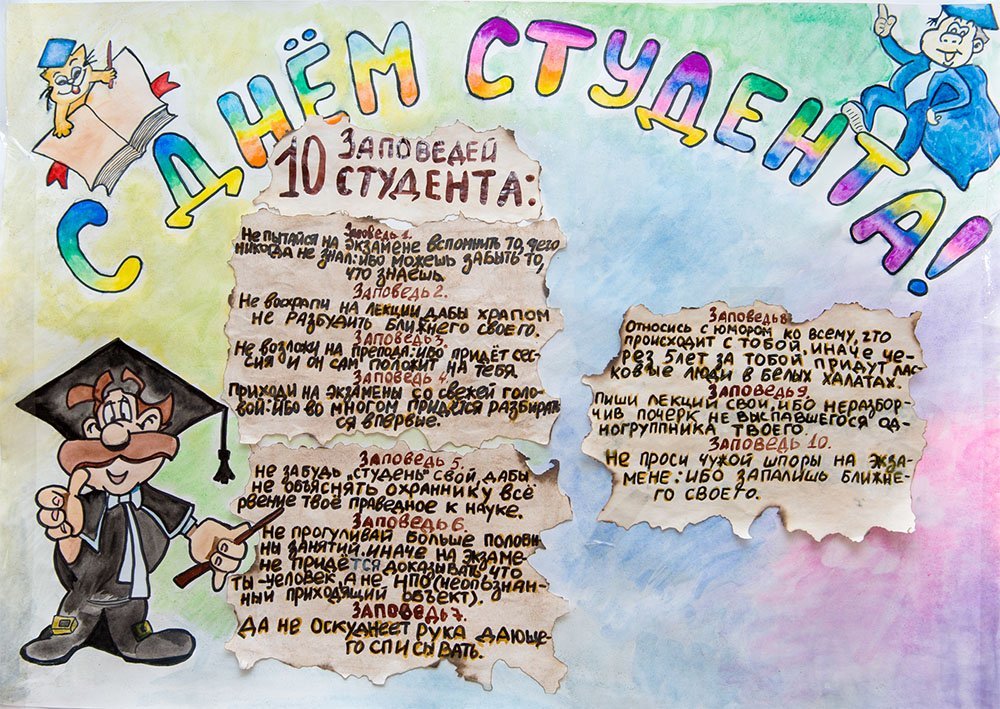 С ДНЁМ СТУДЕНТА!
10 ЗАПОВЕДЕЙ
СТУДЕНТА:
Заповедь 1.
Не пытайся на экзамене вспомнить то, чего
никогда не знал: ибо можешь забыть то,
что знаешь.
Заповедь 2.
Не восхрапи на лекции, дабы храпом
не разбудить ближнего своего.
Заповедь 3.
Не возложи на препода: ибо придёт сес-
сия и он сам положит на тебя.
Заповедь 4.
Приходи на экзамены со свежей голо-
вой: ибо во многом придётся разбирать
ся впервые.
Заповедь 5.
Не забудь „студень" свой, дабы
не объяснять охраннику всё
рвение твоё праведное к науке.
Заповедь 6.
Не прогуливай больше полови-
ны занятий, иначе на экзаме-
не придётся доказывать, что
ты-человек, а не НПО (неопознан-
ный приходящий объект).
Заповедь 7.
Да не оскуднеет рука дающе-
го списывать.
Заповедь 8.
Относись с юмором ко всему, что
происходит с тобой, иначе че-
рез 5 лет за тобой придут лас-
ковые люди в белых халатах.
Заповедь 9.
Пиши лекции свои, ибо неразбор-
чив почерк не выспавшегося од-
ногруппника твоего.
Заповедь 10.
Не проси чужой шпоры на экза-
мене: ибо запалишь ближне-
го своего.